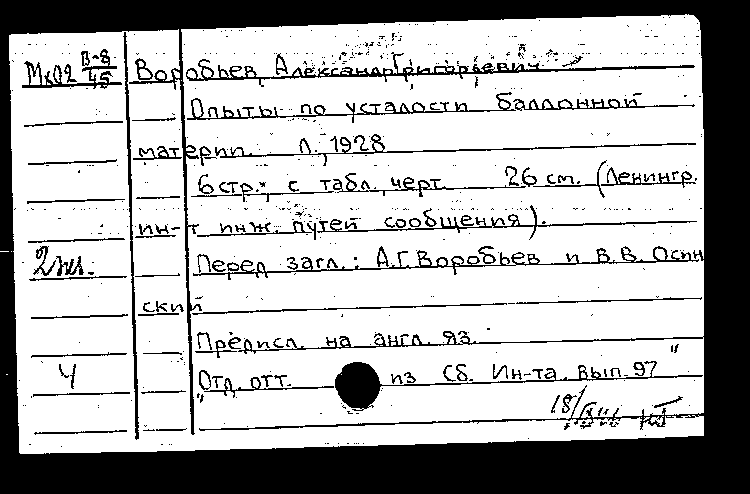 Мк02 В-8/45 Воробьев, Александр Григорьевич
Опыты по усталости баллонной
материи. Л., 1928
6 стр., с табл., черт. 26 см. (Ленингр.
ин-т инж. путей сообщения).
2 экз. Перед загл.: А.Г. Воробьев и В.В. Осин
ский
Предисл. на англ. яз.
Ч "Отд. отт. из Сб. Ин-та. Вып. 97"
18/